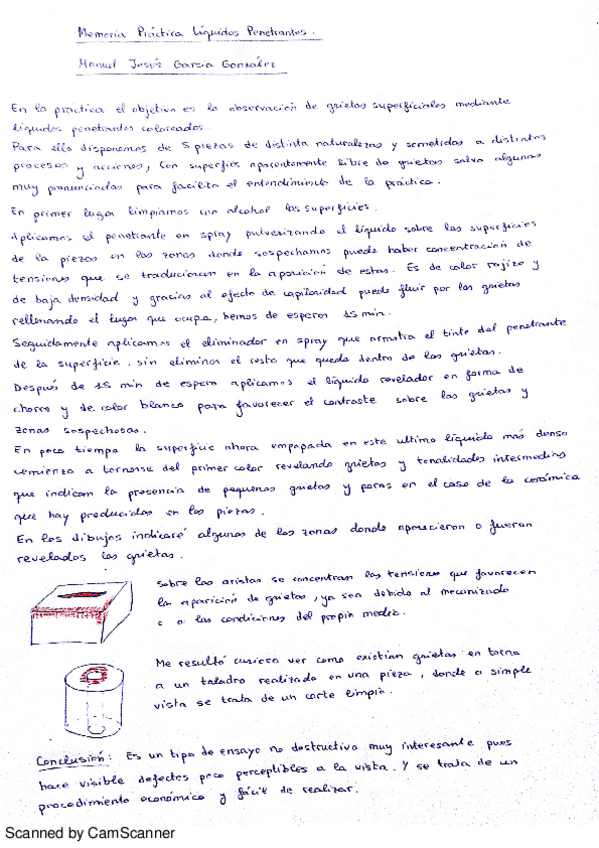 Memoria Práctica Líquidos Penetrantes.
Manuel Jesús García González
En la práctica el objetivo es la observación de grietas superficiales mediante
líquidos penetrantes coloreados.
Para ello disponemos de 5 piezas de distinta naturalezas y sometidas a distintos
procesos y acciones, con superficies aparentemente libre de grietas salvo algunas
muy pronunciadas para facilita el entendimiento de la práctica.
En primer lugar limpiamos con alcohol las superficies.
Aplicamos el penetrante en spray pulverizando el líquido sobre las superficies
de la piezas en las zonas donde sospechamos puede haber concentración de
tensiones que se traducirían en la aparición de estas. Es de color rojizo y
de baja densidad y gracias al efecto de capilaridad puede fluir por las grietas
rellenando el lugar que ocupa, hemos de esperar 15 min.
Seguidamente aplicamos el eliminador en spray que arrastra el tinte del penetrante
de la superficie, sin eliminar el resto que queda dentro de las grietas.
Después de 15 min de espera aplicamos el líquido revelador en forma de
chorro y de color blanco para favorecer el contraste sobre las grietas y
zonas sospechosas.
En poco tiempo la superficie ahora empapada en este ultimo líquido más denso
comienza a tornarse del primer color revelando grietas y tonalidades intermedias
que indican la presencia de pequeñas grietas y poros en el caso de la cerámica
que hay producidas en las piezas.
En los dibujos indicaré algunas de las zonas donde aparecieron o fueron
revelados las grietas.
Sobre las aristas se concentran las tensiones que favorecen
la aparición de grietas, ya sea debido al mecanizado
o a las condiciones del propio medio.
Me resultó curioso ver como existían grietas en torno
a un taladro realizado en una pieza, donde a simple
vista se trata de un corte limpio.
Conclusión: Es un tipo de ensayo no destructivo muy interesante pues
hace visible defectos poco perceptibles a la vista. Y se trata de un
procedimiento económico y fácil de realizar.
Scanned by CamScanner